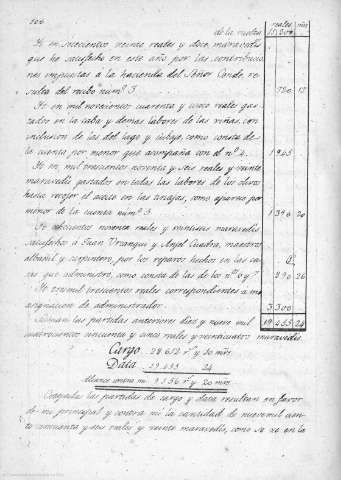 106
reales mrs
de la vuelta 11.200
It en setecientos veinte reales y doce maravedis
que he satisfecho en este año por las contribucio
nes impuestas á la hacienda del Señor Conde, re
sulta del recibo num.º 3 720 12
It en mil novecientos cuarenta y cinco reales gas
tados en la caba y demas labores de las viñas, con
inclusion de las del lago y cubaje, como consta de
la cuenta por menor que acompaña con el nº 4. 1.945
It en mil trescientos noventa y seis reales y veinte
maravedis gastados en todas las labores de los olivos
hasta recojer el aceite en las tinajas, como aparece por
menor de la cuenta num.º 5 1.396 20
It doscientos noventa reales y veintiseis maravedis
satisfechos á Juan Urzanqui y Anjel Cuadra, maestros
albañil y carpintero, por los reparos hechos en las ca
sas que administro, como consta de las de los nos 6 y 7 290 26
It tres mil trescientos reales correspondientes a mi
asignacion de administrador 3.300
Suman las partidas anteriores diez y nueve mil 19.455 24
cuatrocientos cincuenta y cinco reales y veinticuatro maravedis.
Cargo 28.612 rs y 10 mrs
Data 19.455 24
Alcance contra mi 9.156 rs y 20 mrs
Cotejadas las partidas de cargo y data resultan en favor
de mi principal y contra mi la cantidad de nueve mil cien
to cincuenta y seis reales y veinte maravedis, como se ve en la